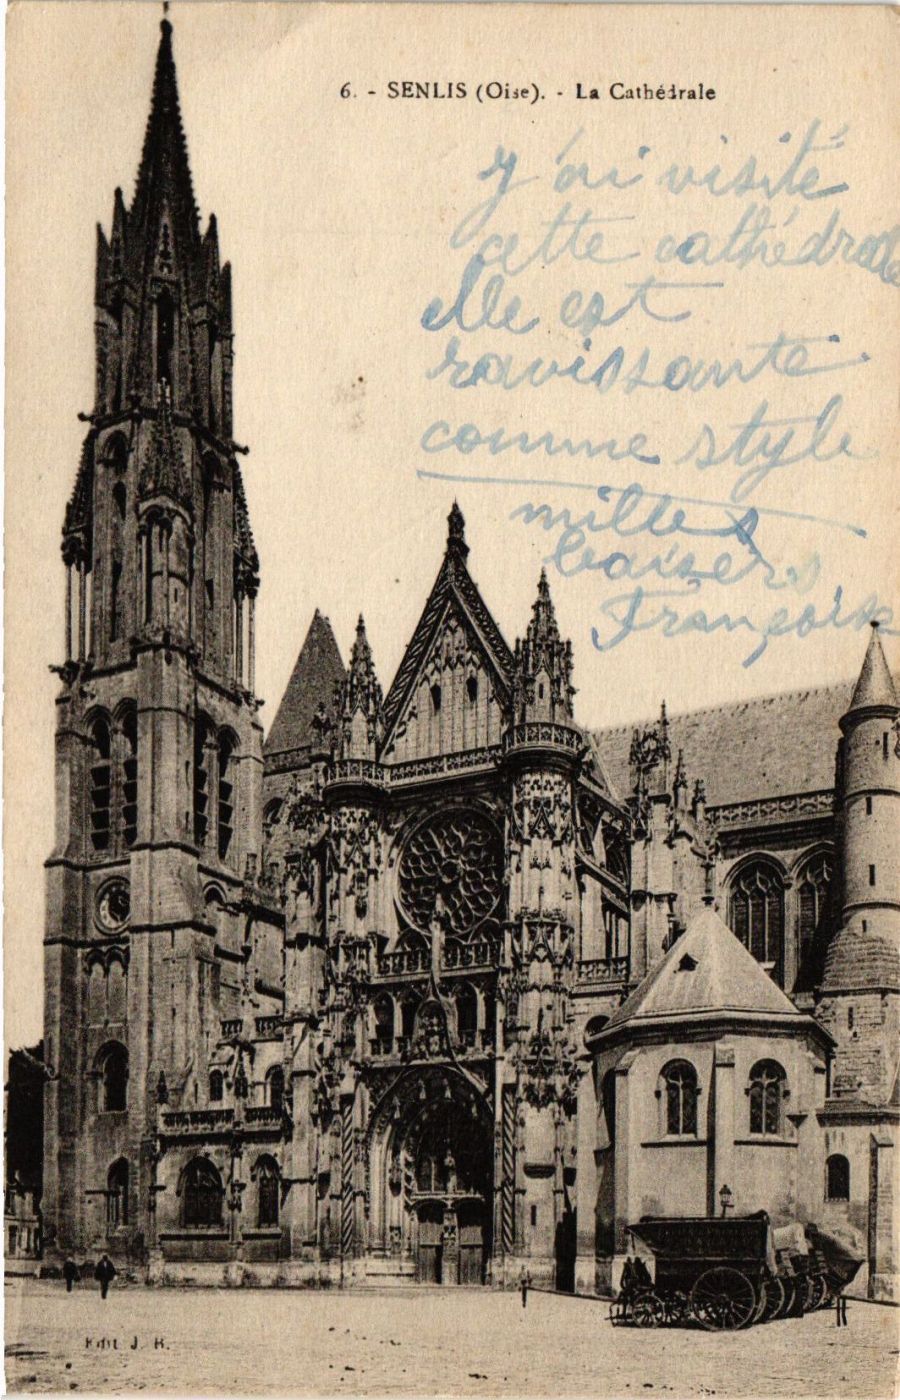 6. - SENLIS (Oise). - La Cathédrale
j'ai visité
cette cathédrale
elle est
ravissante
comme style
milles
baisers
Françoise
Edit J. R.